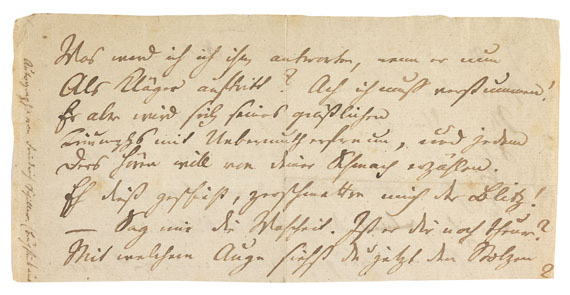 Was werd ich ich ihm antworten, wenn er nun
Als Kläger auftritt? Ach ich muß verstummen!
Er aber wird sich seines gräßlichen
Triumphs mit Uebermuth erfreun, und jedem
Ders hören will von deiner Schmach erzählen.
Eh dieß geschieht, zerschmettre mich der Blitz!
— Sag mir die Wahrheit. Ist er dir noch theuer?
Mit welchem Auge siehst du jetzt den Stolzen
?